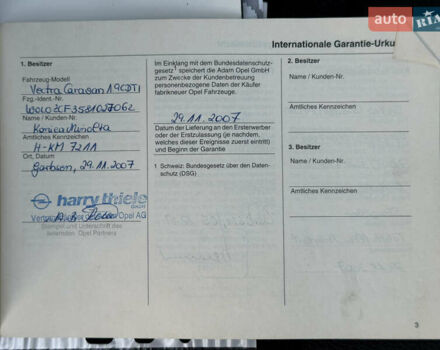 auto RIA
Internationale Garantie-Urku
1. Besitzer
Fahrzeug-Modell
Vectra Caravan 1.9CDTI
Fzg.-Ident.-Nr.
W0L0ZCF3581027062
Name / Kunden-Nr.
Konica Minolta
Amtliches Kennzeichen
H-KM 7211
Ort, Datum
Garbsen, 29.11.2007
harry thiele
GmbH
Opel AG
Stempel und Unterschrift des
liefernden Opel Partners
Im Einklang mit dem Bundesdatenschutz-
gesetz¹ speichert die Adam Opel GmbH
zum Zwecke der Kundenbetreuung
personenbezogene Daten der Käufer
fabrikneuer Opel Fahrzeuge.
29.11.2007
Datum der Lieferung an den Ersterwerber
oder der Erstzulassung (je nachdem,
welches dieser Ereignisse zuerst eintritt)
und Beginn der Garantie
1 Schweiz: Bundesgesetz über den Daten-
schutz (DSG)
2. Besitzer
Name / Kunden-Nr.
Amtliches Kennzeichen
3. Besitzer
Name / Kunden-Nr.
Amtliches Kennzeichen
3